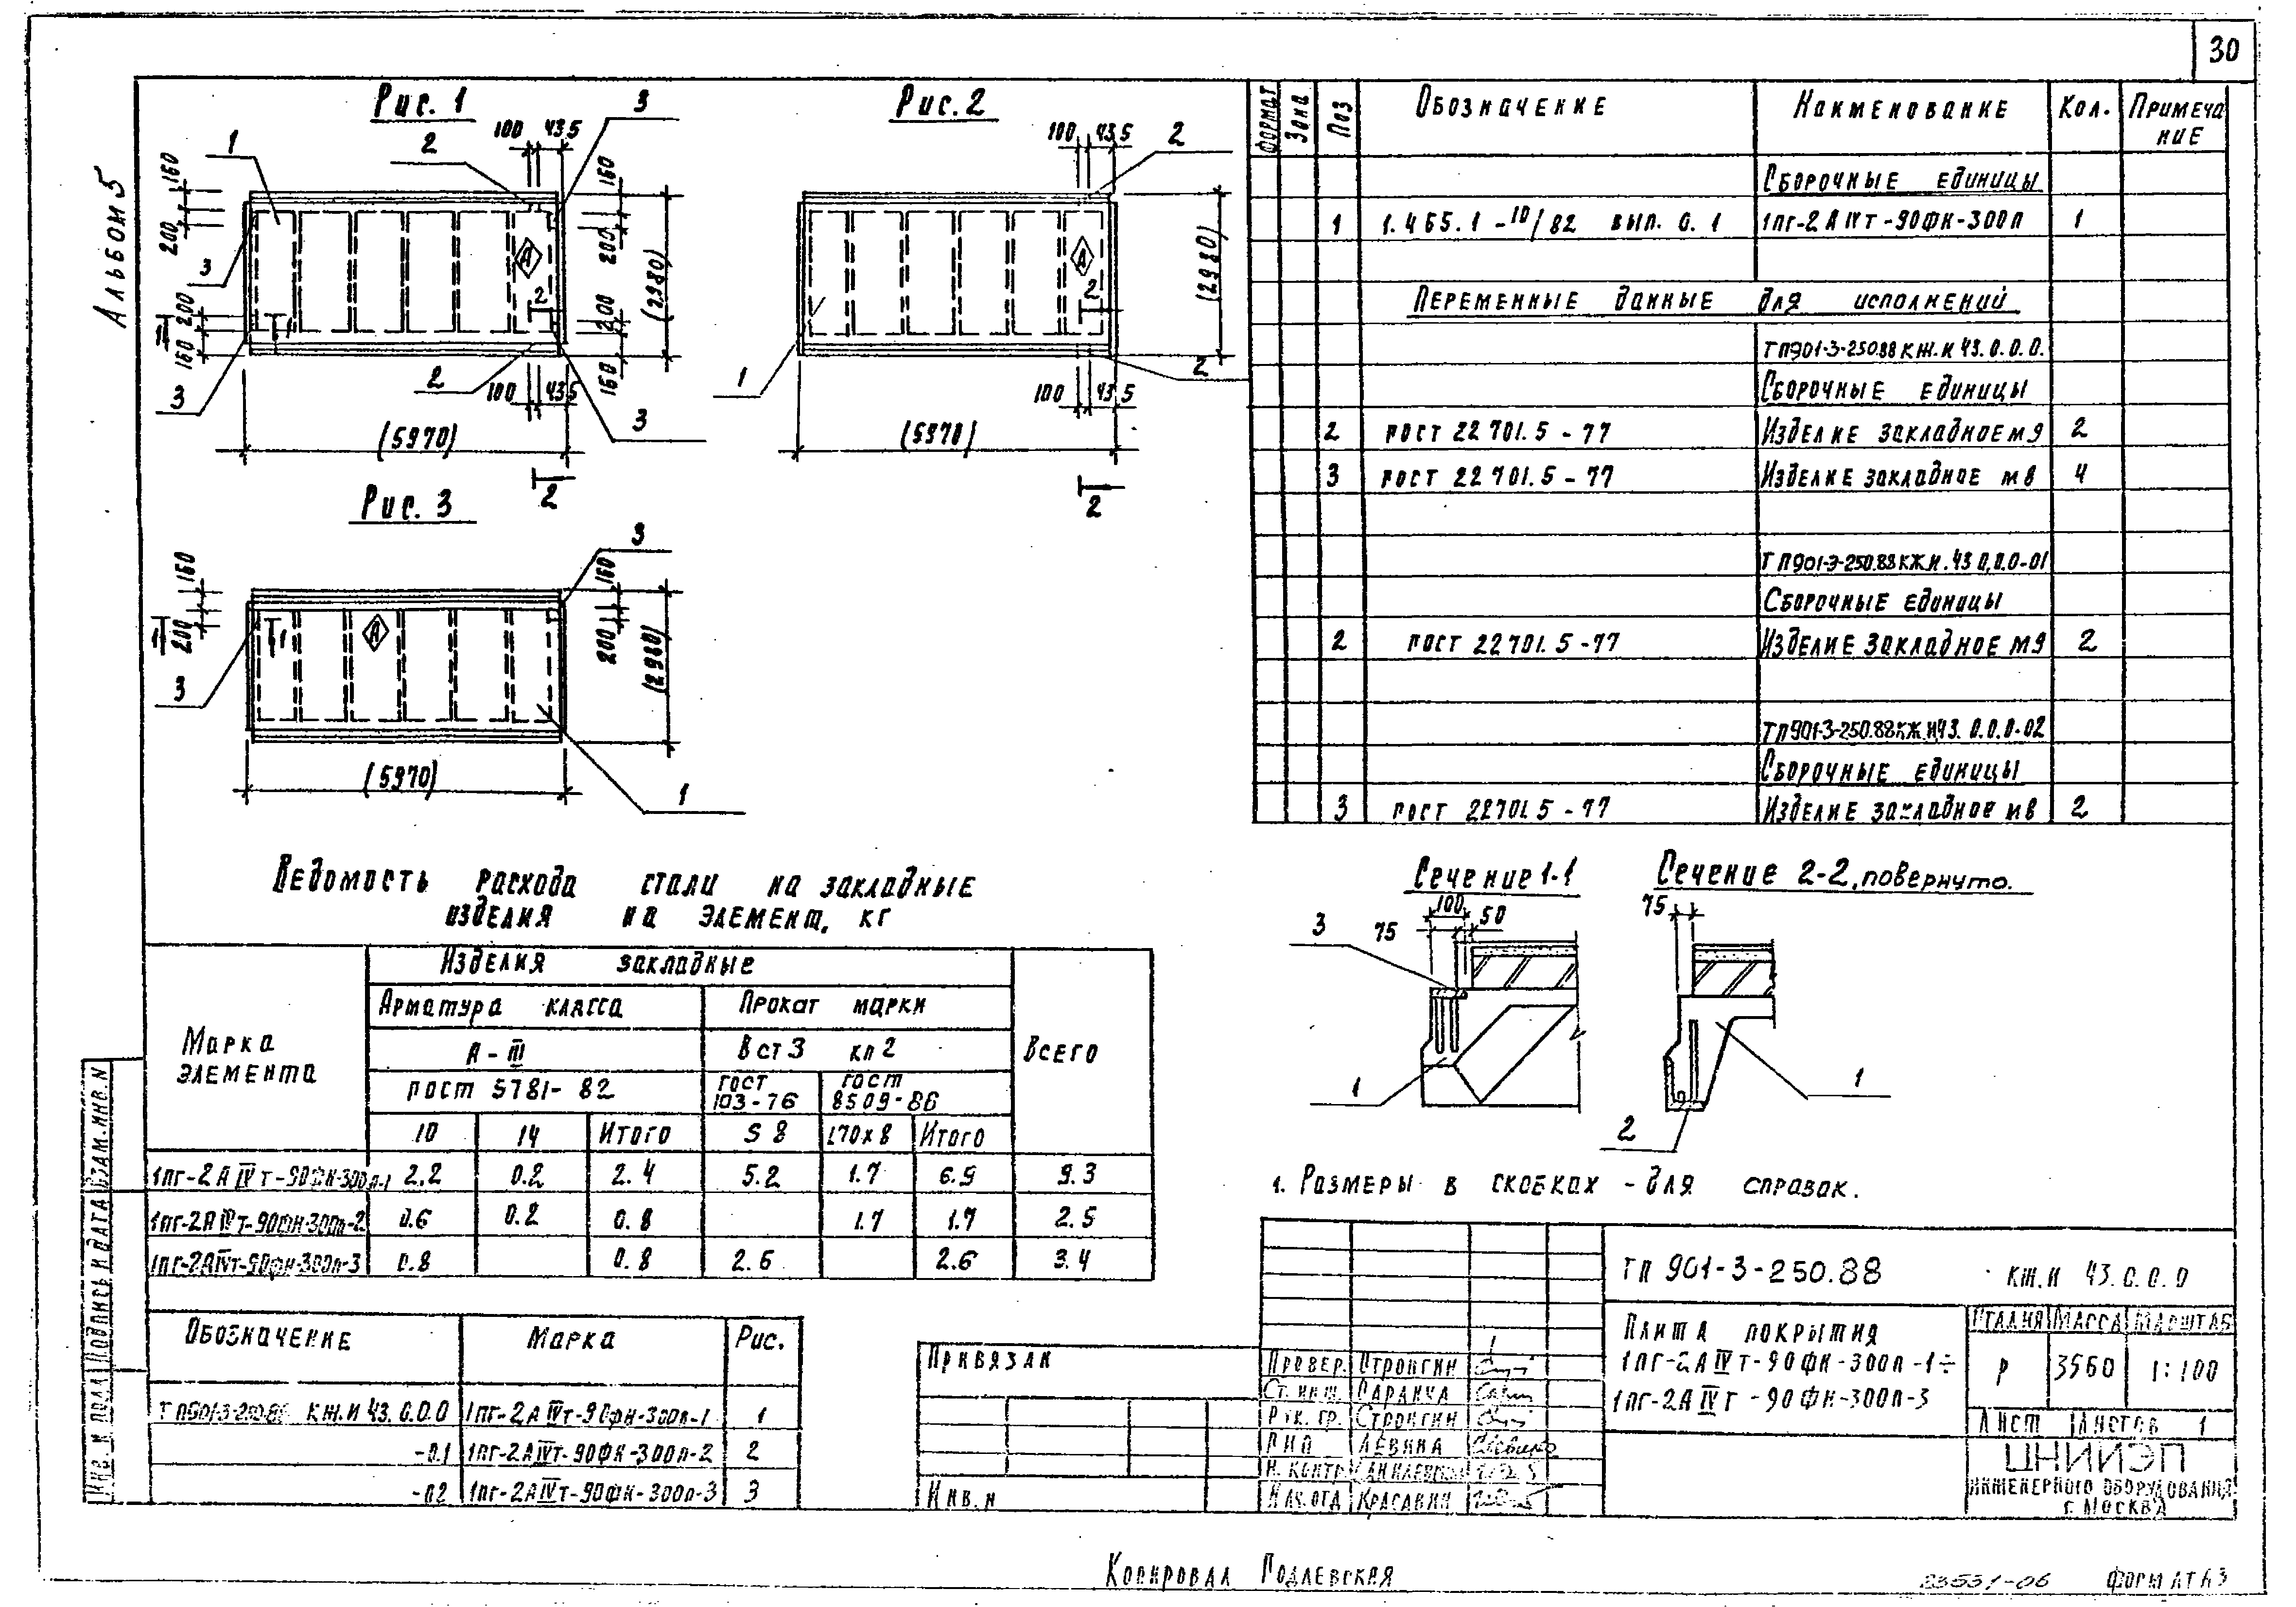 30
Альбом 5
Рис. 1
1
2
3
100 435
160
200
160
200
(2980)
А
3
2
200
160
1
1
200
160
3
2
3
100 435
(5970)
2
Рис. 2
100 435
2
А
(2980)
2
1
2
100 435
(5970)
2
Рис. 3
3
160
200
1
1
А
160
200
(2980)
3
(5970)
1
Формат Зона Поз Обозначение Наименование Кол. Примечание
Сборочные единицы
1 1.465.1-10/82 вып. 0.1 1пг-2АIVт-90фн-300п 1
Переменные данные для исполнений
ТП901-3-250.88 КЖ.И 43.0.0.0.
Сборочные единицы
2 ГОСТ 22701.5-77 Изделие закладное м9 2
3 ГОСТ 22701.5-77 Изделие закладное м8 4
ТП901-3-250.88 КЖ.И.43 0.0.0-01
Сборочные единицы
2 ГОСТ 22701.5-77 Изделие закладное м9 2
ТП901-3-250.88 КЖ.И43.0.0.0-02
Сборочные единицы
3 ГОСТ 22701.5-77 Изделие закладное м8 2
Ведомость расхода стали на закладные
изделия на элемент, кг
Марка элемента
Изделия закладные
Всего
Арматура класса Прокат марки
А-III Вст3 кп2
ГОСТ 5781-82 ГОСТ 103-76 ГОСТ 8509-86
10 14 Итого S 8 L70х8 Итого
1пг-2АIVт-90фн-300п-1 2.2 0.2 2.4 5.2 1.7 6.9 9.3
1пг-2АIVт-90фн-300п-2 0.6 0.2 0.8 1.7 1.7 2.5
1пг-2АIVт-90фн-300п-3 0.8 0.8 2.6 2.6 3.4
Сечение 1-1
100
75 50
3
1
Сечение 2-2, повернуто.
75
1
2
1. Размеры в скобках - для справок.
Обозначение Марка Рис.
ТП901-3-250.88 КЖ.И 43.0.0.0 1пг-2АIVт-90фн-300п-1 1
-01 1пг-2АIVт-90фн-300п-2 2
-02 1пг-2АIVт-90фн-300п-3 3
Привязан
Инв.н
Провер. Стронгин
Ст. инж.
Рук. гр. Стронгин
ГИП Левина
Н. контр
Нач.отд Красавин
ТП 901-3-250.88 КЖ.И 43.0.0.0
Плита покрытия
1пг-2АIVт-90фн-300п-1÷
1пг-2АIVт-90фн-300п-3
Стадия Масса Масштаб
Р 3560 1:100
Лист Листов 1
ЦНИИЭП
инженерного оборудования
г. Москва
Инв. N подл Подпись и дата Взам.инв.N
Копировал Подлевская
23531-06
Формат А3